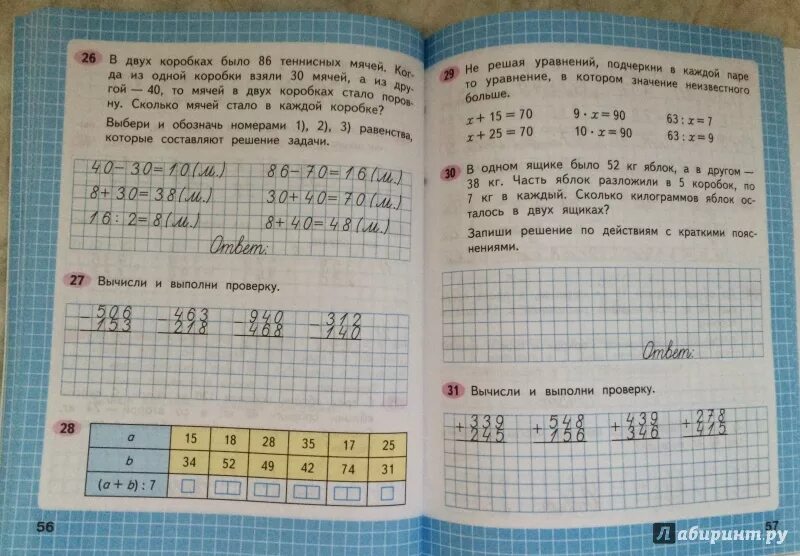 26 В двух коробках было 86 теннисных мячей. Ког-
да из одной коробки взяли 30 мячей, а из дру-
гой — 40, то мячей в двух коробках стало поров-
ну. Сколько мячей стало в каждой коробке?
Выбери и обозначь номерами 1), 2), 3) равенства,
которые составляют решение задачи.
40-30=10(м.) 86-70=16(м.)
8+30=38(м.) 30+40=70(м.)
16:2=8(м.) 8+40=48(м.)
Ответ:
27 Вычисли и выполни проверку.
- 506 - 463 - 940 - 312
153 218 468 140
28 a 15 18 28 35 17 25
b 34 52 49 42 74 31
(a + b) : 7
56
29 Не решая уравнений, подчеркни в каждой паре
то уравнение, в котором значение неизвестного
больше.
x + 15 = 70 9 · x = 90 63 : x = 7
x + 25 = 70 10 · x = 90 63 : x = 9
30 В одном ящике было 52 кг яблок, а в другом —
38 кг. Часть яблок разложили в 5 коробок, по
7 кг в каждый. Сколько килограммов яблок ос-
талось в двух ящиках?
Запиши решение по действиям с краткими пояс-
нениями.
Ответ:
31 Вычисли и выполни проверку.
+ 339 + 548 + 439 + 278
245 156 346 415
57
Лабиринт.ру